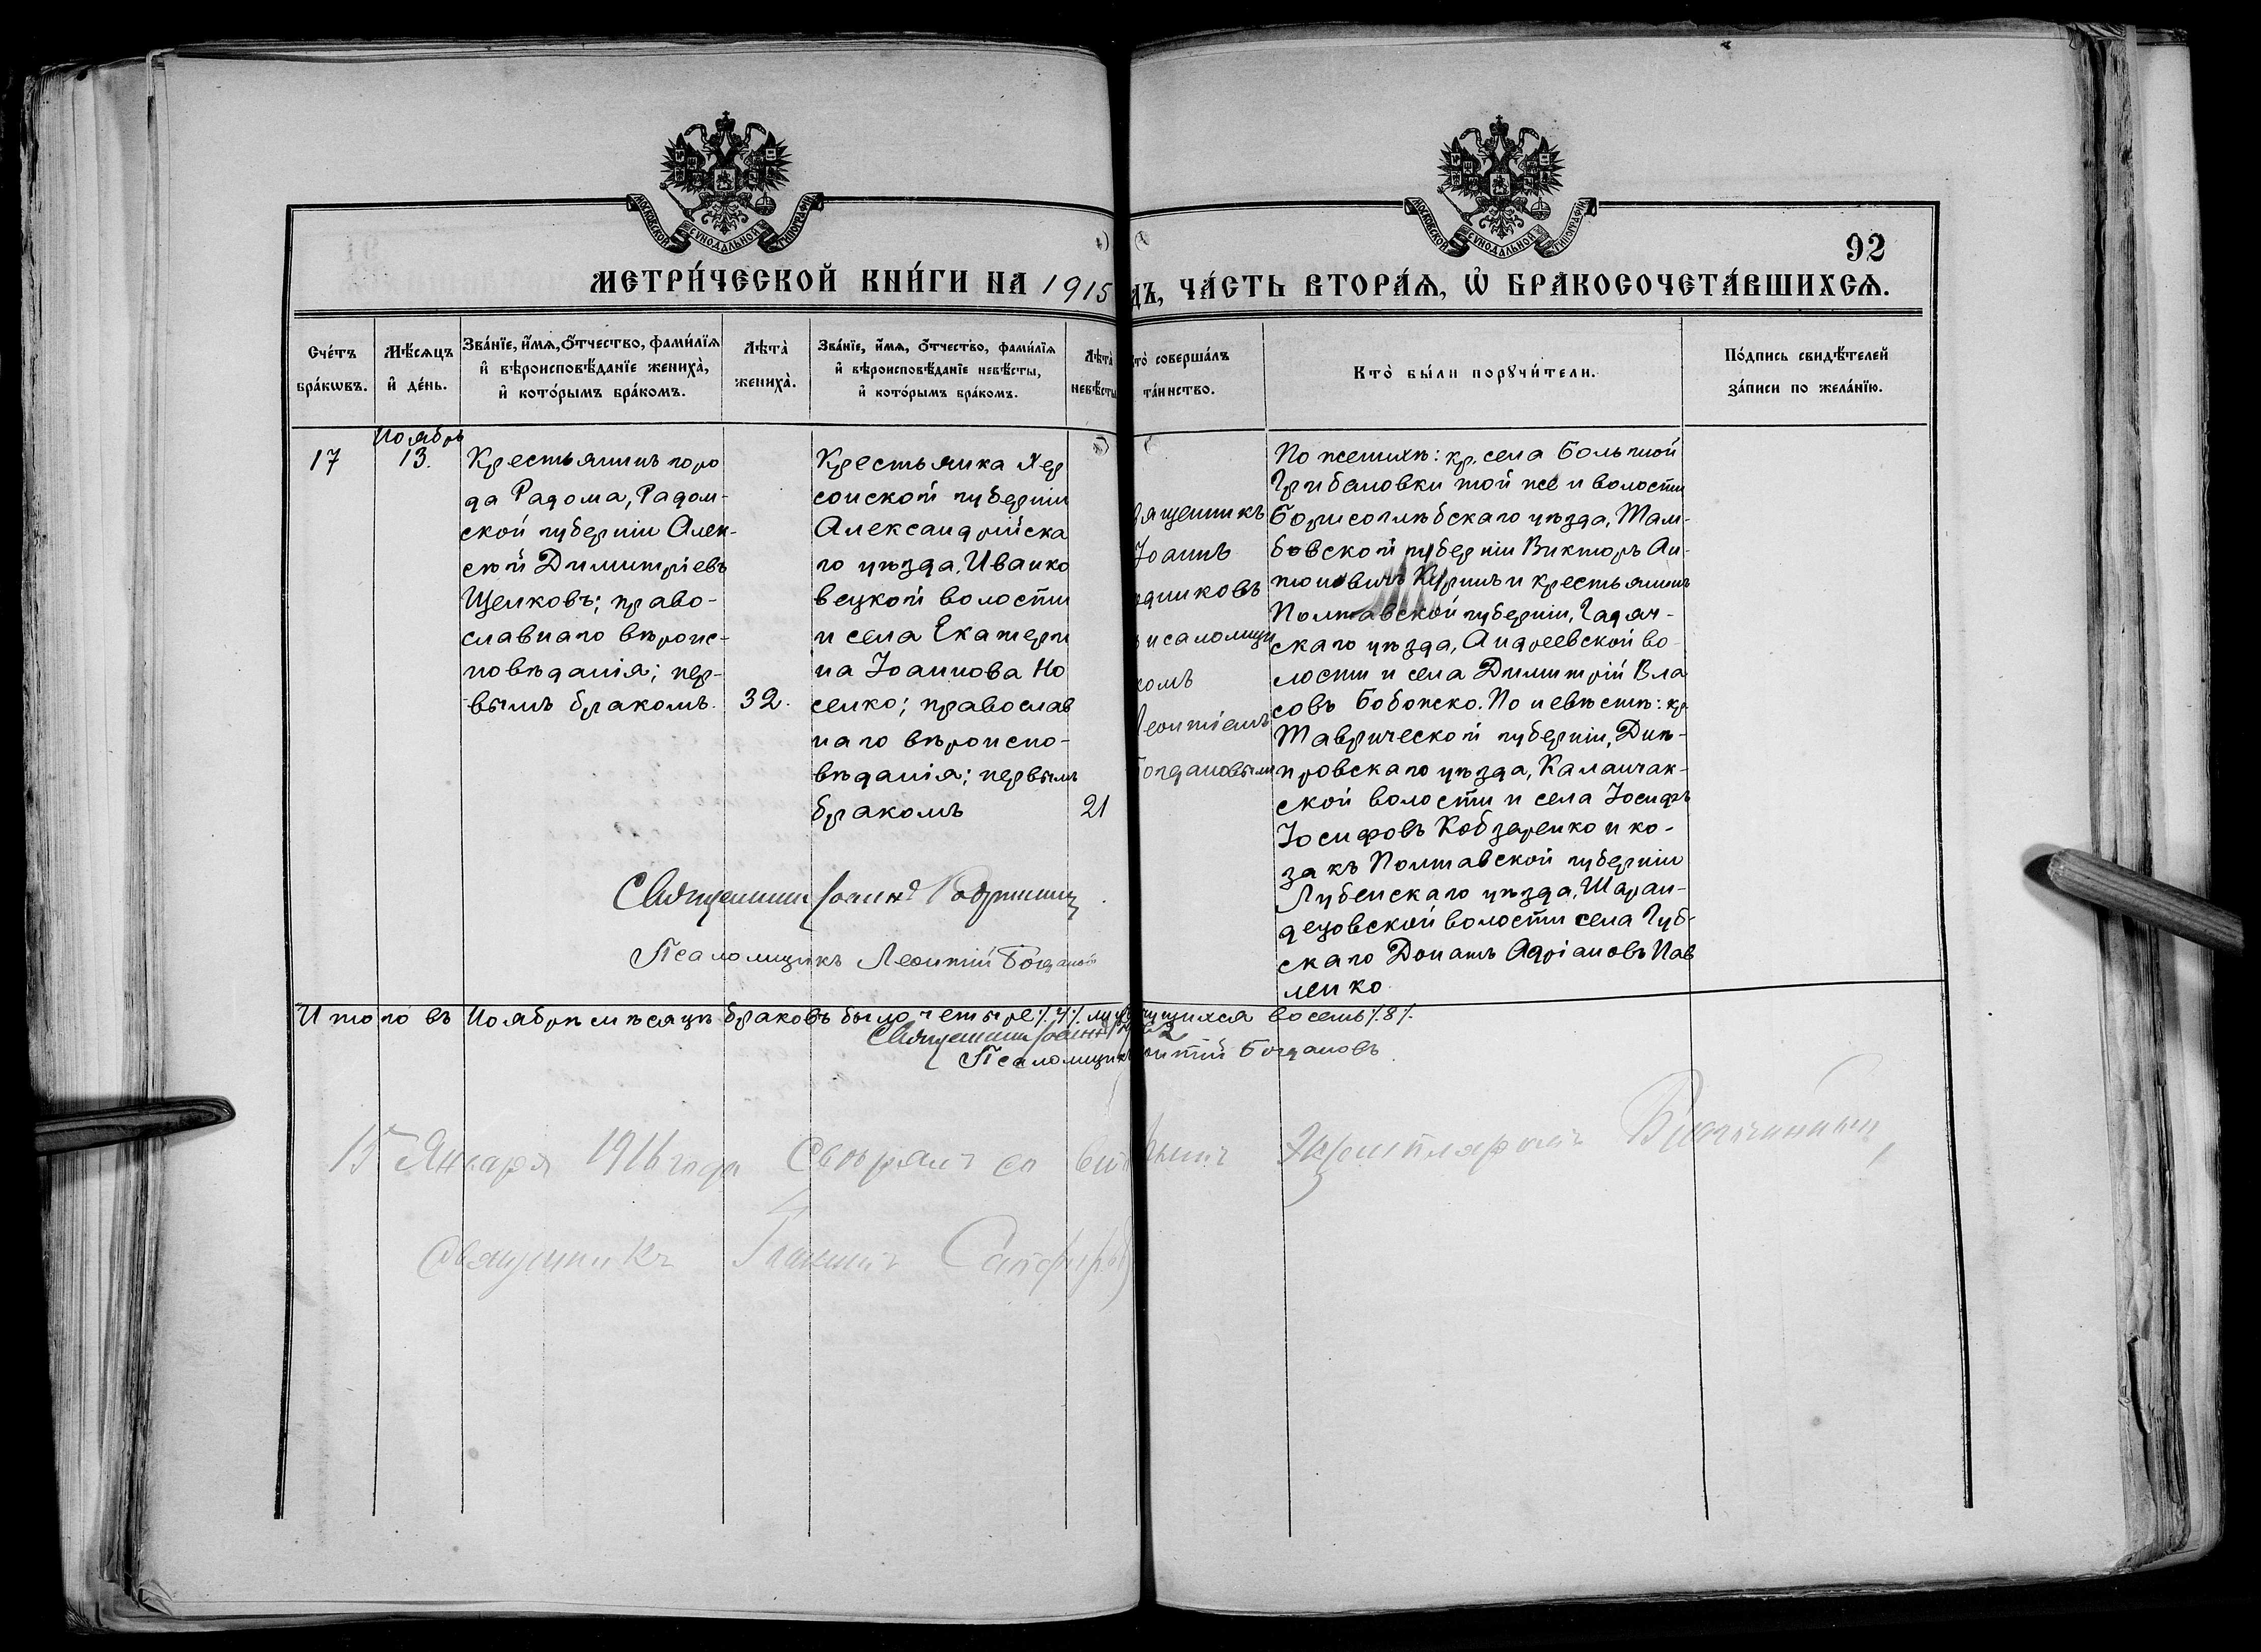 МОСКОВСКОЙ СѴНОДАЛЬНОЙ ТИПОГРАФІИ
МОСКОВСКОЙ СѴНОДАЛЬНОЙ ТИПОГРАФІИ
92
МЕТРИ́ЧЕСКОЙ КНИ́ГИ НА 1915
ДЪ, ЧА́СТЬ ВТОРА́Ѧ, Ѡ҆ БРАКОСОЧЕТА́ВШИХСѦ.
Сче́тъ
бра́кѡвъ.
Мѣ́сяцъ
и҆ де́нь.
Зва́нїе, и҆́мѧ, ѻ҆́тчество, фами́лїѧ
и҆ вѣроисповѣ́данїе жениха̀,
и҆ кото́рымъ бра́комъ.
Лѣта̀
жениха̀.
Зва́нїе, и҆́мѧ, ѻ҆́тчество, фами́лїѧ
и҆ вѣроисповѣ́данїе невѣ́сты,
и҆ кото́рымъ бра́комъ.
Лѣта̀
невѣ́сты
то̀ соверша́лъ
та́инство.
Кто̀ бы́ли порꙋчи́тели.
По́дпись свидѣ́телей
за́писи по жела́нїю.
17
Ноябрь
13.
Крестьянинъ горо
да Радома, Радом-
ской губерніи Алек-
сѣй Димитріевъ
Щелковъ; право-
славнаго вѣроис-
повѣданія; пер-
вымъ бракомъ.
32.
Крестьянка Хер
сонской губерніи
Александрійска
го уѣзда, Иванко
вецкой волости
и села Екатери
на Іоаннова Но
сенко; православ
наго вѣроиспо-
вѣданія; первымъ
бракомъ
21
ященникъ
Іоаннъ
одниковъ
псаломщи
комъ
Леонтіемъ
Богдановымъ
По женихѣ: кр. села Большой
Грибановки той же и волости
Борисоглѣбскаго уѣзда, Там-
бовской губерніи Викторъ Ан-
тоновичъ и крестьянинъ
Полтавской губерніи, Гадяч-
скаго уѣзда, Андреевской во-
лости и села Димитрій Вла
совъ Бобошко. По невѣстѣ: кр
Таврической губерніи, Днѣ-
провскаго уѣзда, Каланчак-
ской волости и села Іосифъ
Іосифовъ Кобзаренко и ко-
закъ Полтавской губерніи
Лубенскаго уѣзда, Шаран-
децовской волости села Губ-
скаго Донатъ Адріановъ Пав
ленко
Священникъ Іоаннъ
Псаломщикъ Леонтій Богдановъ
Итого въ Ноябрѣ мѣсяцѣ браковъ было четыре /.4/. лицъ щихся восемь /.8/.
Священникъ Іоаннъ
Псаломщикъ онтій Богдановъ
15 Января 1916 года Свѣрялъ съ Экземпляромъ
Священникъ